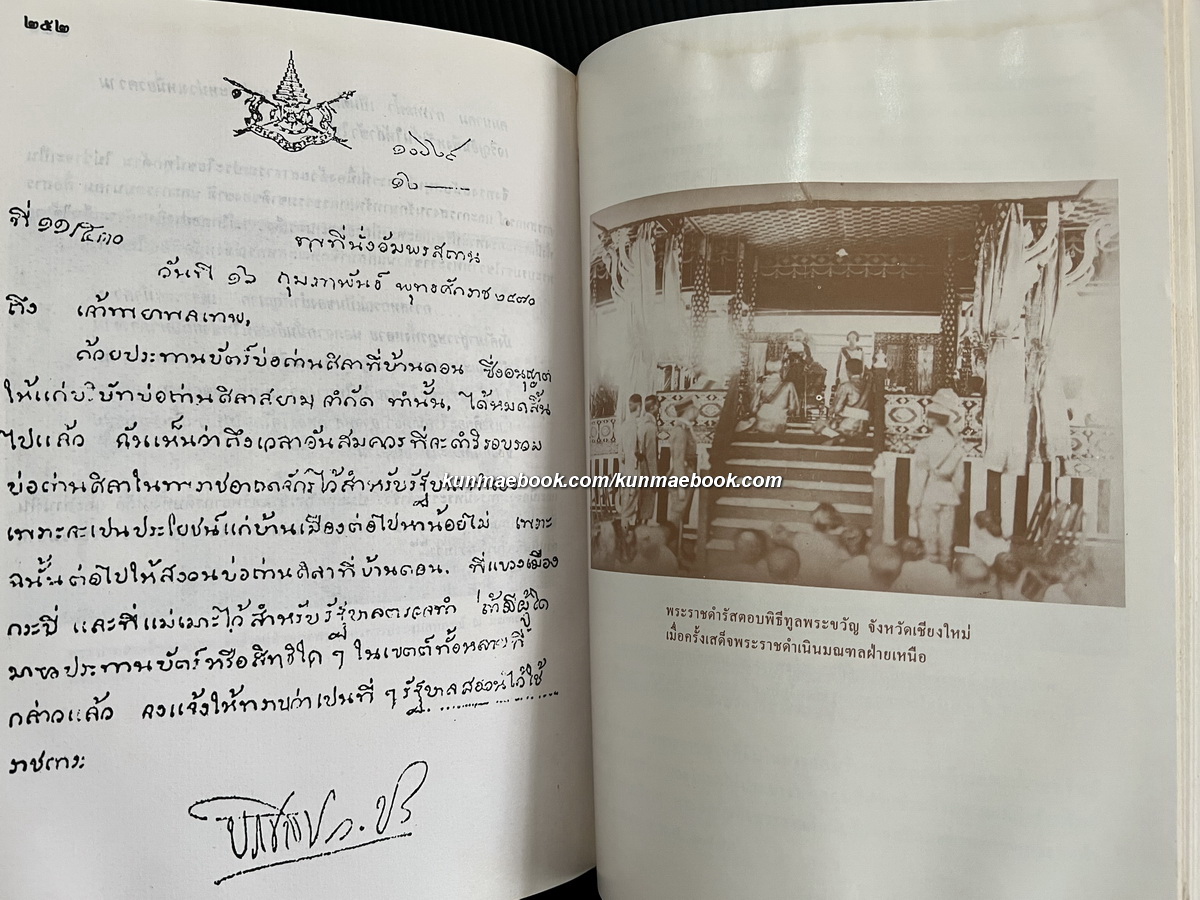 ๒๕๒
๑๐๖๒๙
๑๖
ที่ ๑๑/๕๓๐
พระที่นั่งอัมพรสถาน
วันที่ ๑๖ กุมภาพันธ์ พุทธศักราช ๒๔๗๐
ถึง เจ้าพระยาพลเทพ,
ด้วยประทานบัตร์บ่อถ่านศิลาที่บ้านดอน ซึ่งอนุญาต
ให้แก่บริษัทบ่อถ่านศิลาสยาม จำกัด ทำนั้น, ได้หมดสิ้น
ไปแล้ว ฉันเห็นว่าถึงเวลาอันสมควรที่จะดำริรอบรวม
บ่อถ่านศิลาในพระราชอาณาจักร์ไว้สำหรับรัฐบาล
kunmaebook.com/kunmaebook.com
เพราะจะเปนประโยชน์แก่บ้านเมืองต่อไปหาน้อยไม่ เพราะ
ฉนั้นต่อไปให้สงวนบ่อถ่านศิลาที่บ้านดอน, ที่แขวงเมือง
กระบี่ และที่แม่เมาะไว้สำหรับรัฐบาลตรวจทำ ถ้ามีผู้ใด
มาขอประทานบัตร์หรือสิทธิใด ๆ ในเขตต์ทั้งหลายที่
กล่าวแล้ว จงแจ้งให้ทราบว่าเปนที่ ๆ รัฐบาลสงวนไว้ใช้
ราชการ
ประชาธิปก. ปร
พระราชดำรัสตอบพิธีทูลพระขวัญ จังหวัดเชียงใหม่
เมื่อครั้งเสด็จพระราชดำเนินมณฑลฝ่ายเหนือ